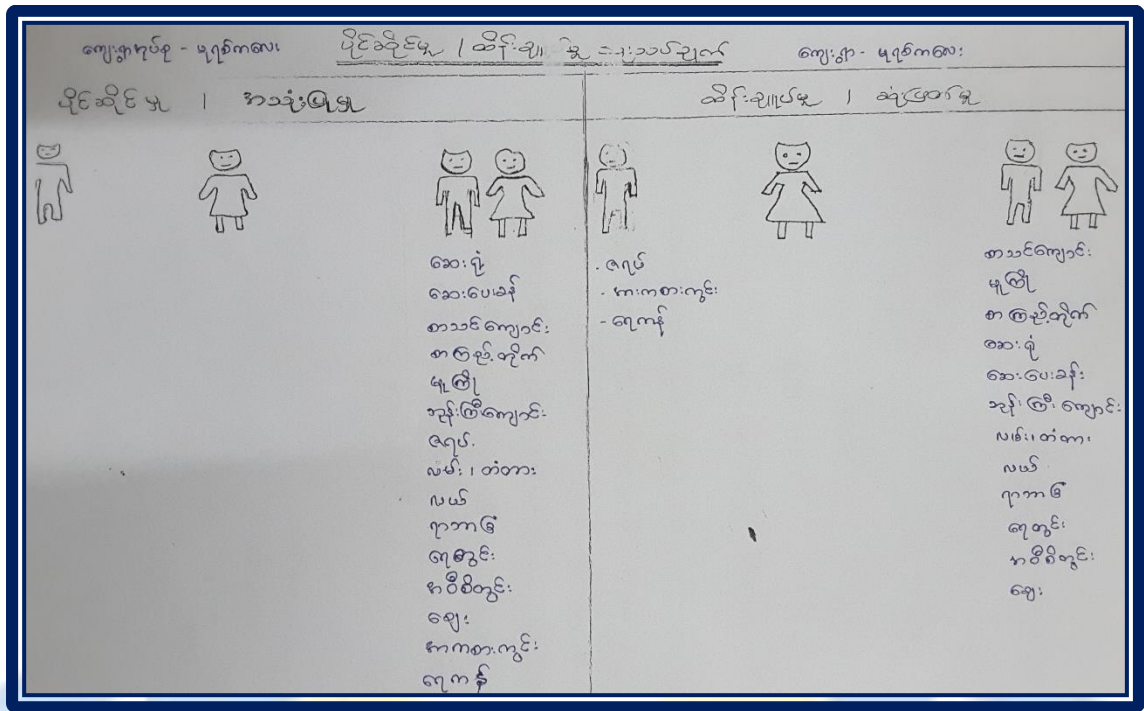 ကျေးရွာအုပ်စု - မုရစ်ကလေး
ပိုင်ဆိုင်မှု / ထိန်းချုပ်မှု သုံးသပ်ချက်
ကျေးရွာ - မုရစ်ကလေး
ပိုင်ဆိုင်မှု / အသုံးပြုမှု
ဆေးရုံ
ဆေးပေးခန်
စာသင်ကျောင်း
စာကြည့်တိုက်
မူကြို
ဘုန်းကြီးကျောင်း
ဇရပ်
လမ်း၊ တံတား
လယ်
ရာဘာခြံ
ရေတွင်း
အဝီစိတွင်း
ဈေး
အားကစားကွင်း
ရေကန်
ထိန်းချုပ်မှု / ဆုံးဖြတ်မှု
- ဇရပ်
- အားကစားကွင်း
- ရေကန်
စာသင်ကျောင်း
မူကြို
စာကြည့်တိုက်
ဆေးရုံ
ဆေးပေးခန်း
ဘုန်းကြီးကျောင်း
လမ်း၊ တံတား
လယ်
ရာဘာခြံ
ရေတွင်း
အဝီစိတွင်း
ဈေး